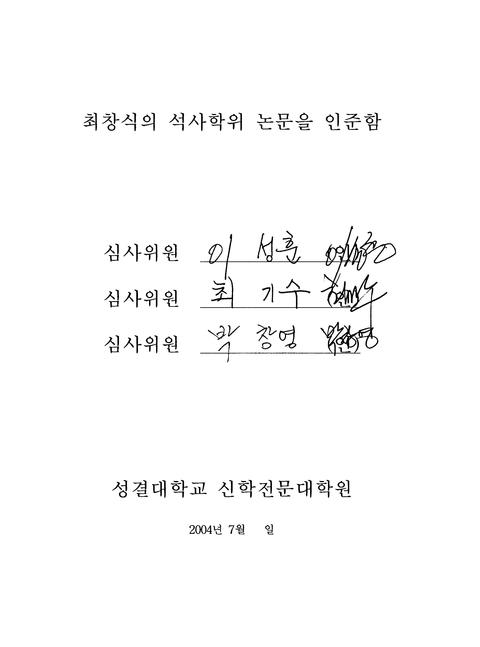 최창식의 석사학위 논문을 인준함
심사위원 이 성훈
심사위원 최 기수
심사위원 박 창영
성결대학교 신학전문대학원
2004년 7월 일